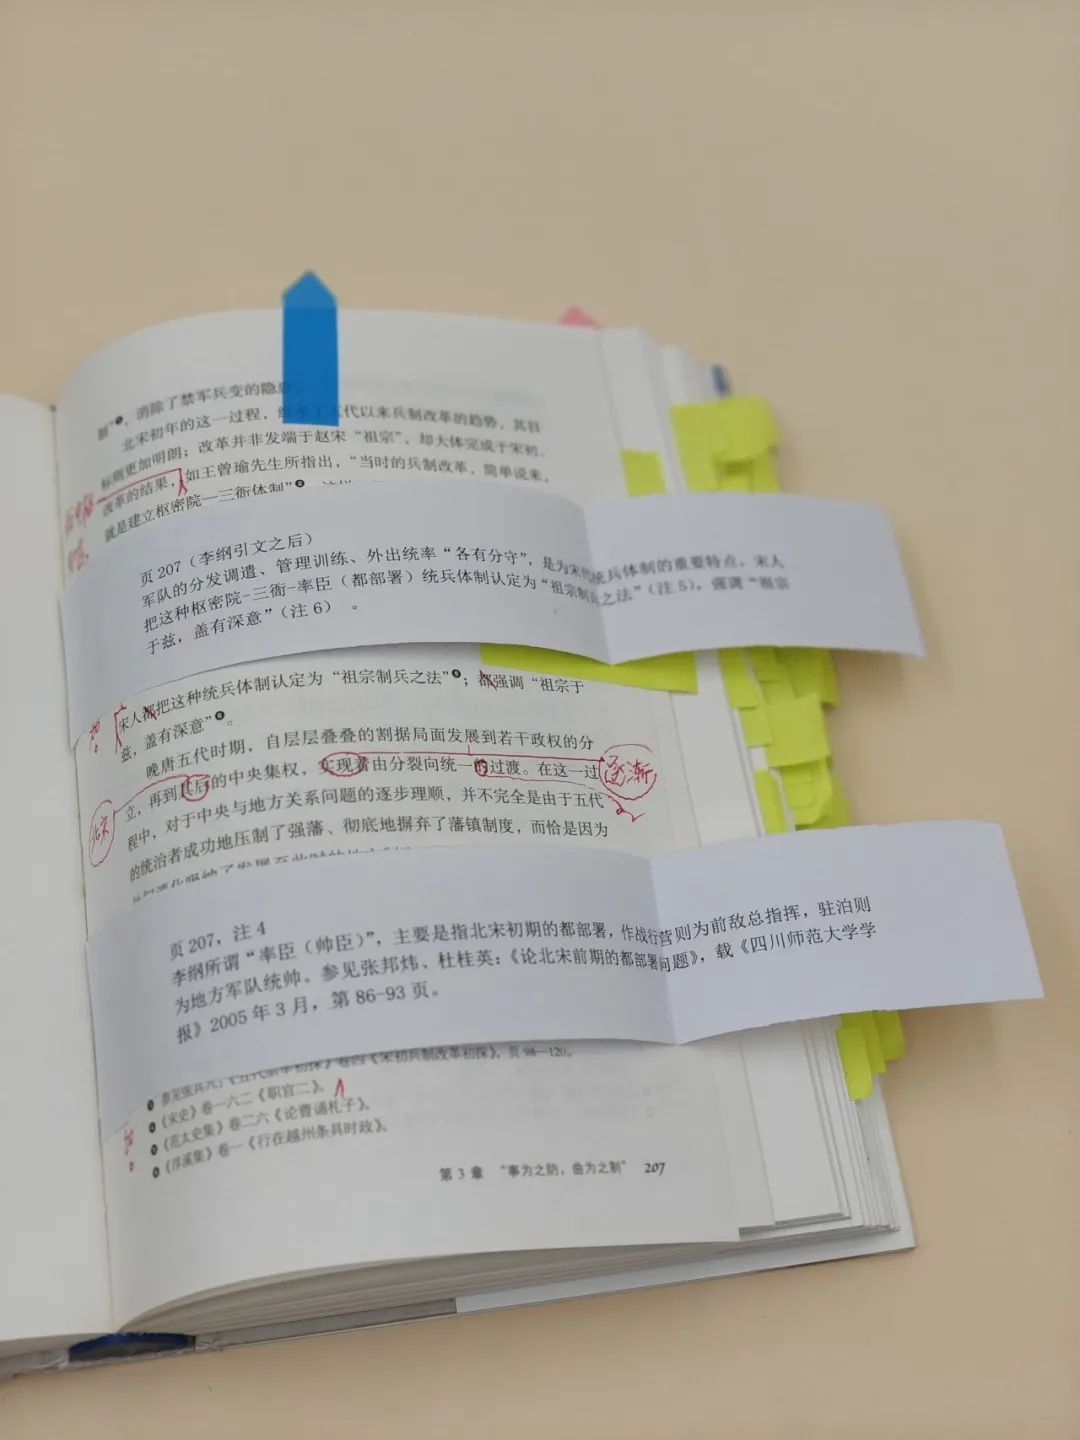 制”❶，消除了禁军兵变的隐
北宋初年的这一过程，五代以来兵制改革的趋势，其目
标则更加明朗；改革并非发端于赵宋“祖宗”，却大体完成于宋初。
改革的结果，如王曾瑜先生所指出，“当时的兵制改革，简单说来，
就是建立枢密院—三衙体制”❷
页 207（李纲引文之后）
军队的分发调遣、管理训练、外出统率“各有分守”，是为宋代统兵体制的重要特点，宋人
把这种枢密院-三衙-率臣（都部署）统兵体制认定为“祖宗制兵之法”（注 5），强调“祖宗
于兹，盖有深意”（注 6） 。
宋人都把这种统兵体制认定为“祖宗制兵之法”❺；都强调“祖宗于
兹，盖有深意”❻。
晚唐五代时期，自层层叠叠的割据局面发展到若干政权的分
立，再到其后的中央集权，实现着由分裂向统一的过渡。在这一过
逐渐
北宋
程中，对于中央与地方关系问题的逐步理顺，并不完全是由于五代
的统治者成功地压制了强藩、彻底地摒弃了藩镇制度，而恰是因为
页 207，注 4
李纲所谓“率臣（帅臣）”，主要是指北宋初期的都部署，作战行营则为前敌总指挥，驻泊则
为地方军队统帅。参见张邦炜、杜桂英：《论北宋前期的都部署问题》，载《四川师范大学学
报》2005 年 3 月，第 86-93 页。
卷四《宋初兵制改革初探》，页 98—120。
《宋史》卷一六二《职官二》。
《范太史集》卷二六《论曹诵札子》。
《浮溪集》卷一《行在越州条具时政》。
第 3 章 “事为之防，曲为之制” 207